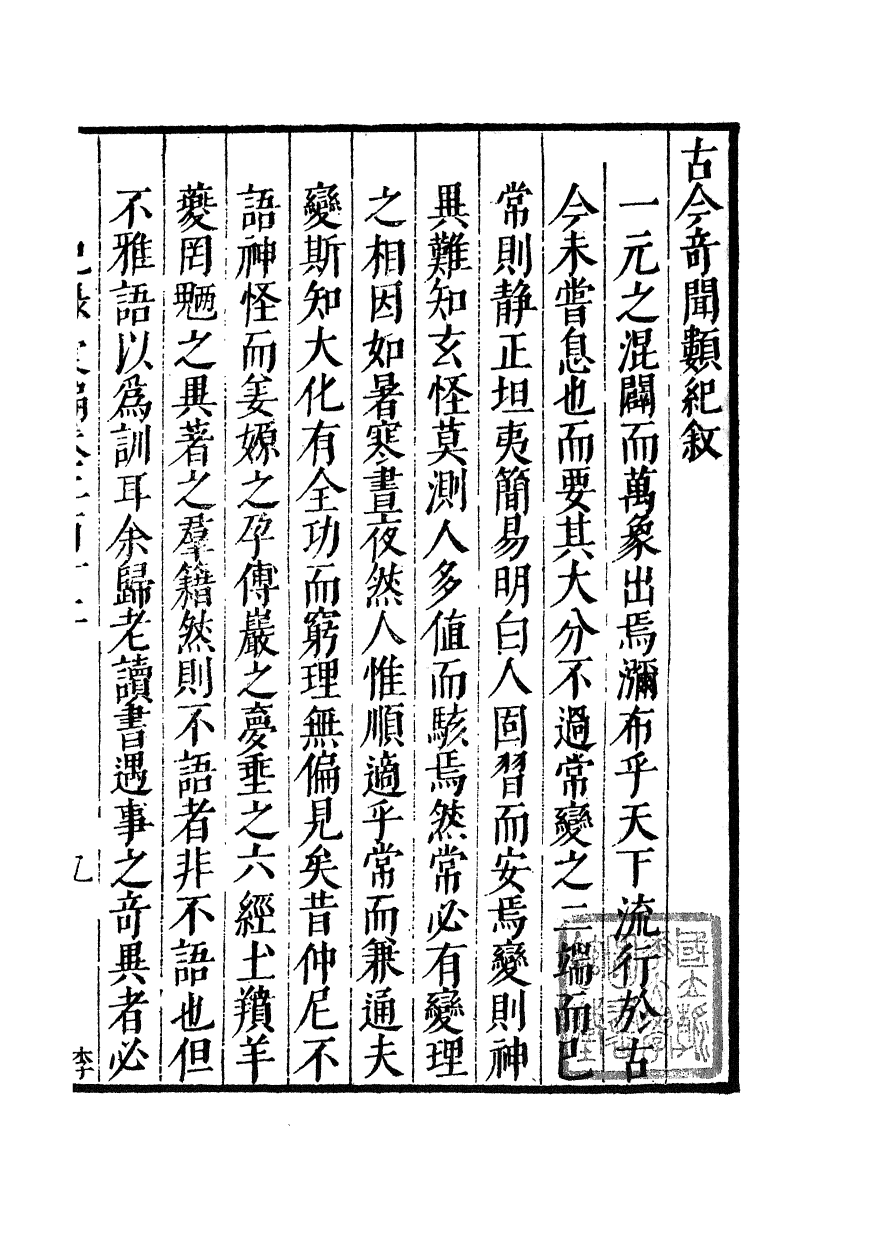 古今奇聞類紀敘
一元之混闢而萬象出焉瀰布乎天下流行於古
今未嘗息也而要其大分不過常變之二端而已
常則静正坦夷簡易明白人固習而安焉變則神
異難知玄怪莫測人多值而駭焉然常必有變理
之相因如暑寒晝夜然人惟順適乎常而兼通夫
變斯知大化有全功而窮理無偏見矣昔仲尼不
語神怪而姜嫄之孕傅巖之夢垂之六經土羵羊
夔罔魎之異著之羣籍然則不語者非不語也但
不雅語以爲訓耳余歸老讀書遇事之奇異者必
李